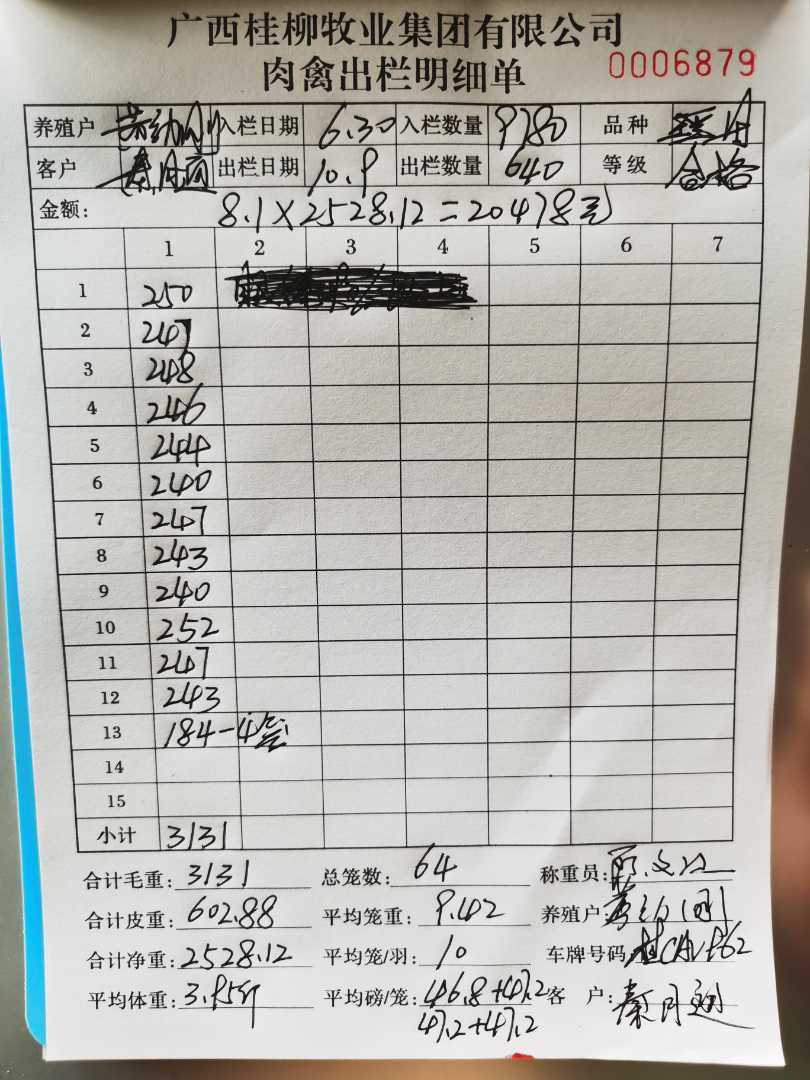 广西桂柳牧业集团有限公司
肉禽出栏明细单 0006879
养殖户 入栏日期 6.30 入栏数量 9780 品种
客户 秦月 出栏日期 10.9 出栏数量 640 等级 合格
金额: 8.1×2528.12=20478元
1 2 3 4 5 6 7
1 250
2 247
3 248
4 246
5 244
6 240
7 247
8 243
9 240
10 252
11 247
12 243
13 184-4笼
14
15
小计 3131
合计毛重: 3131 总笼数: 64 称重员:
合计皮重: 602.88 平均笼重: 9.42 养殖户:
合计净重: 2528.12 平均笼/羽: 10 车牌号码:
平均体重: 3.95斤 平均磅/笼: 46.8+47.2 客 户: 秦月
47.2+47.2